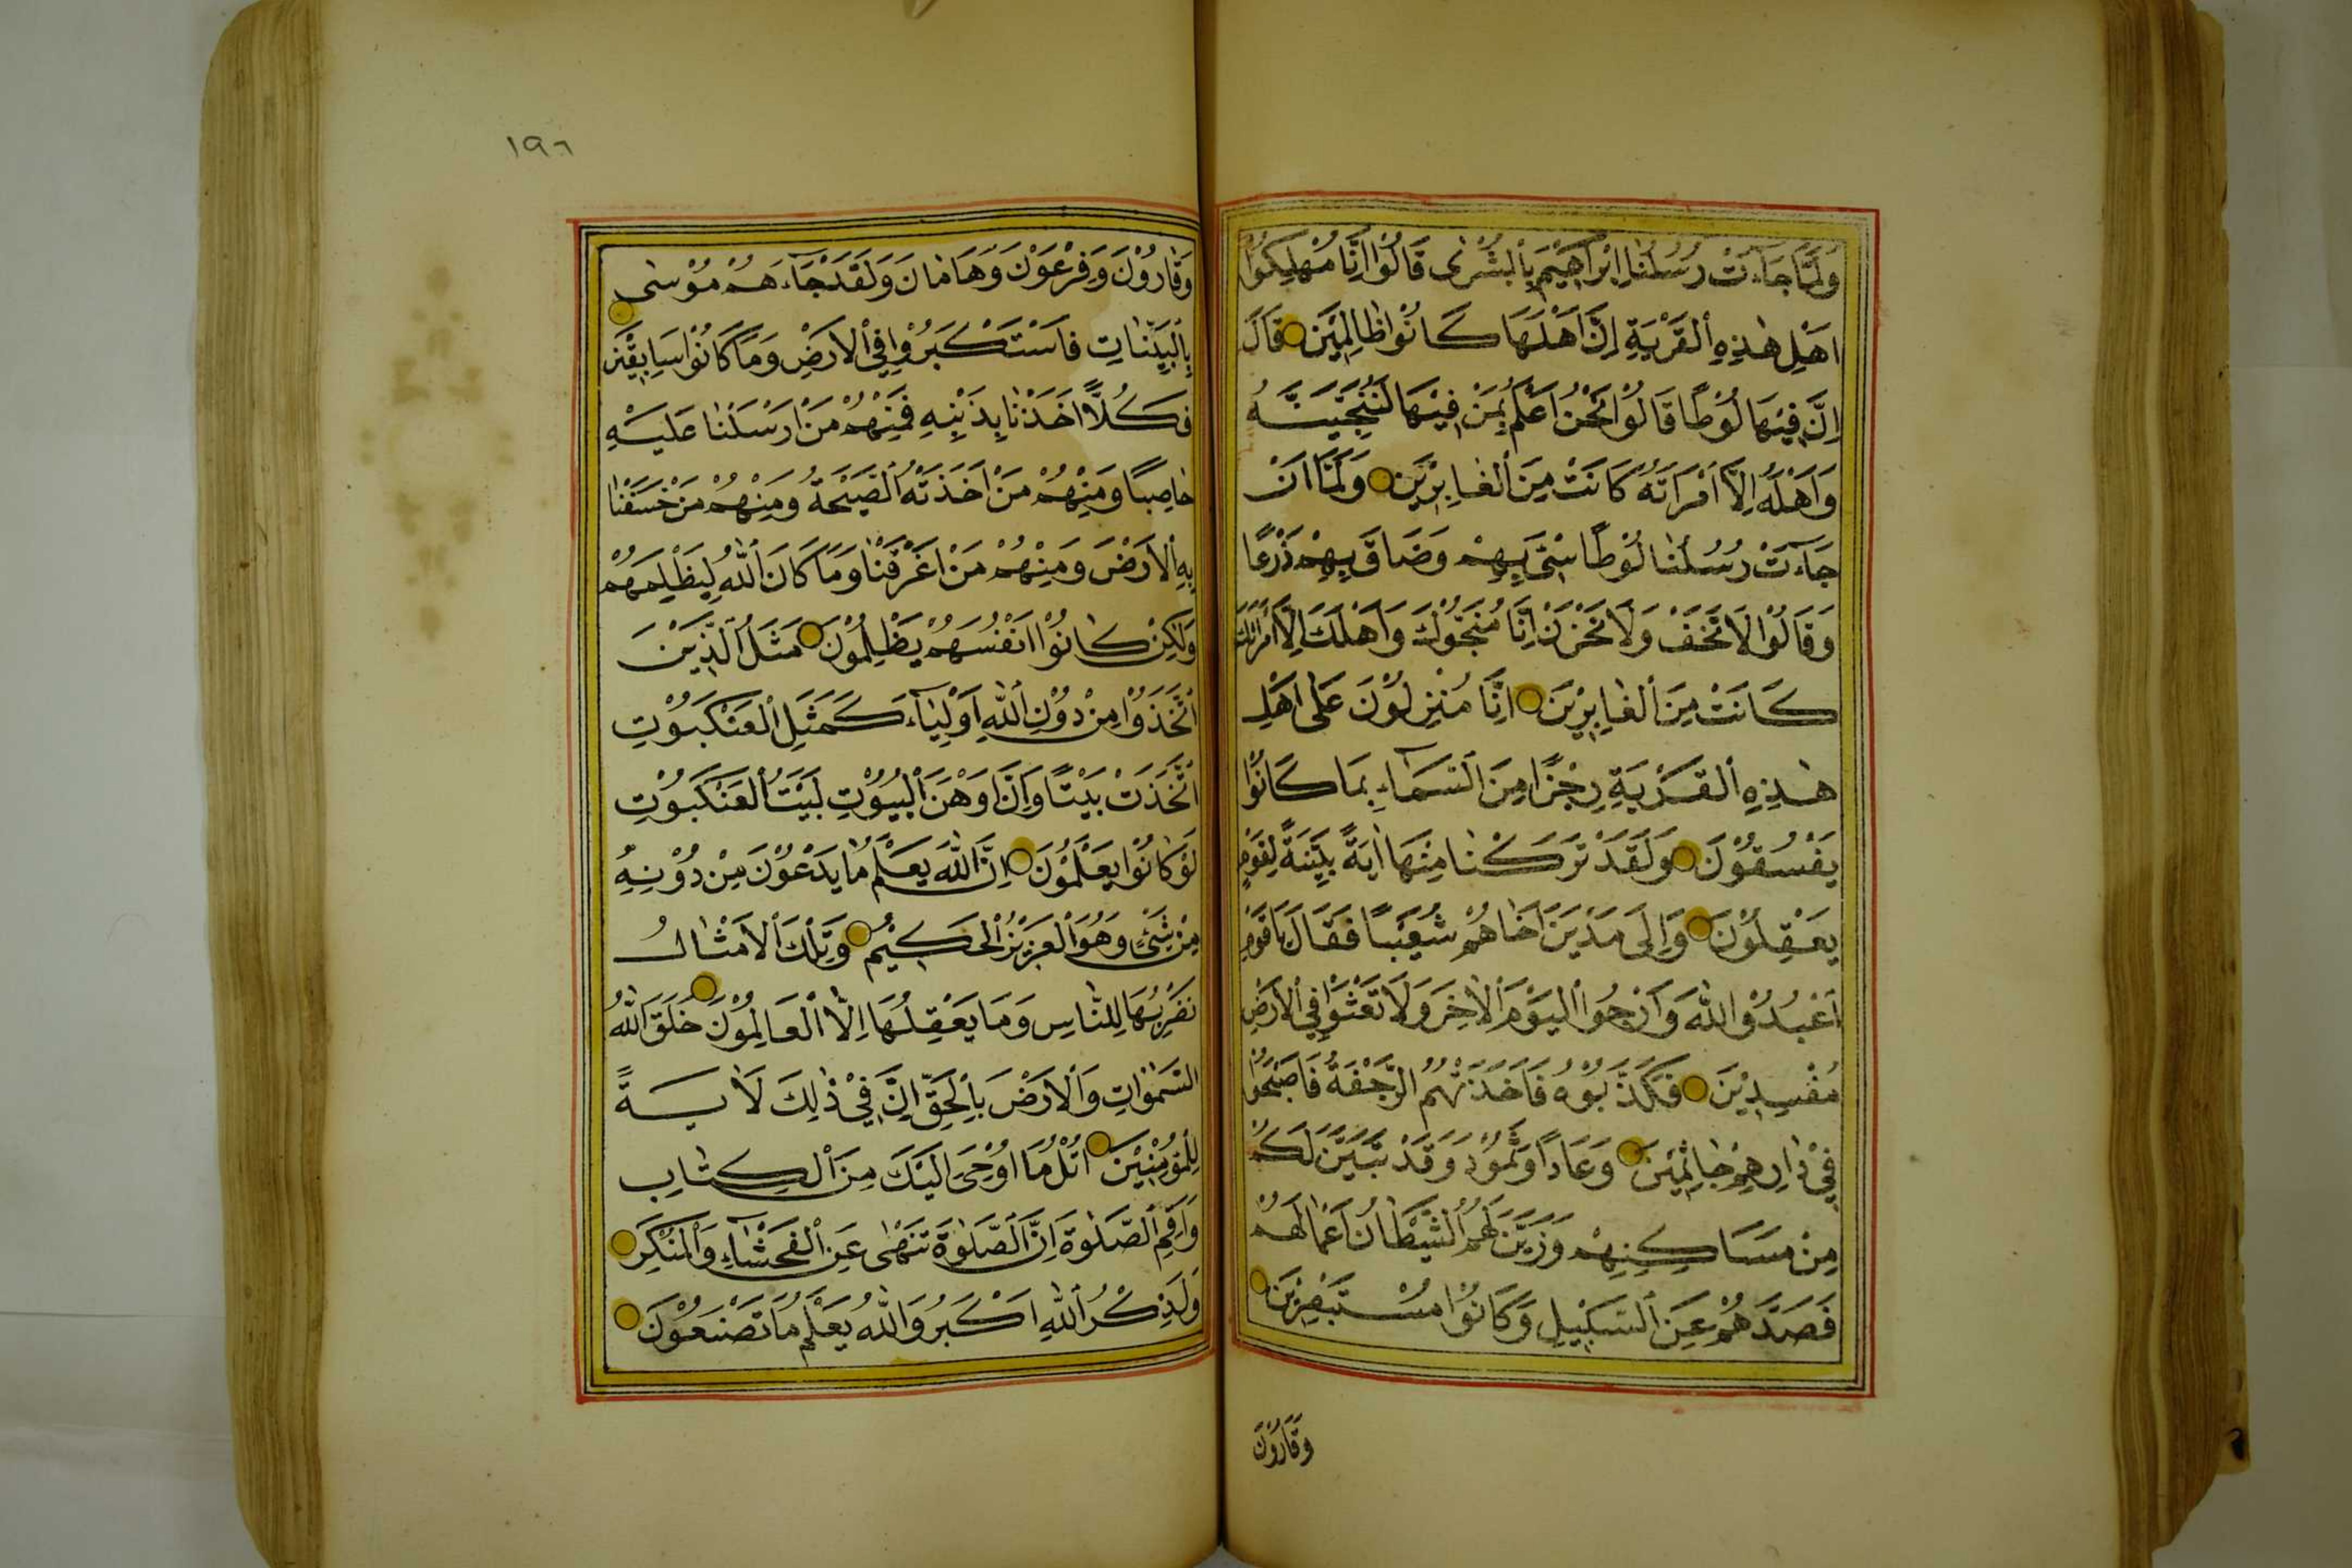 وَلَمَّا جَاءَتْ رُسُلُنَا اِبْرٰاهٖيمَ بِالْبُشْرٰى قَالُوْا اِنَّا مُهْلِكُوْا
اَهْلِ هٰذِهِ الْقَرْيَةِ اِنَّ اَهْلَهَا كَانُوْا ظَالِمٖينَ قَالَ
اِنَّ فٖيْهَا لُوْطًا قَالُوْا نَحْنُ اَعْلَمُ بِمَنْ فٖيْهَا لَنُنَجِّيَنَّهُ
وَاَهْلَهُ اِلَّا امْرَاَتَهُ كَانَتْ مِنَ الْغَابِرٖيْنَ وَلَمَّا اَنْ
جَاءَتْ رُسُلُنَا لُوْطًا سٖئَ بِهِمْ وَضَاقَ بِهِمْ ذَرْعًا
وَقَالُوْا لَا تَخَفْ وَلَا تَحْزَنْ اِنَّا مُنَجُّوْكَ وَاَهْلَكَ اِلَّا امْرَاَتَكَ
كَانَتْ مِنَ الْغَابِرٖيْنَ اِنَّا مُنْزِلُوْنَ عَلٰى اَهْلِ
هٰذِهِ الْقَرْيَةِ رِجْزًا مِنَ السَّمَاءِ بِمَا كَانُوْا
يَفْسُقُوْنَ وَلَقَدْ تَرَكْنَا مِنْهَا اٰيَةً بَيِّنَةً لِقَوْمٍ
يَعْقِلُوْنَ وَاِلٰى مَدْيَنَ اَخَاهُمْ شُعَيْبًا فَقَالَ يَا قَوْمِ
اعْبُدُوْا اللّٰهَ وَارْجُوا الْيَوْمَ الْاٰخِرَ وَلَا تَعْثَوْا فِي الْاَرْضِ
مُفْسِدٖيْنَ فَكَذَّبُوْهُ فَاَخَذَتْهُمُ الرَّجْفَةُ فَاَصْبَحُوْا
فٖيْ دَارِهِمْ جَاثِمٖيْنَ وَعَادًا وَثَمُوْدَ وَقَدْ تَبَيَّنَ لَكُمْ
مِنْ مَسَاكِنِهِمْ وَزَيَّنَ لَهُمُ الشَّيْطَانُ اَعْمَالَهُمْ
فَصَدَّهُمْ عَنِ السَّبٖيْلِ وَكَانُوْا مُسْتَبْصِرٖيْنَ
وَقَارُوْنَ
١٩٦
وَقَارُوْنَ وَفِرْعَوْنَ وَهَامَانَ وَلَقَدْ جَاءَهُمْ مُوْسٰى
بِالْبَيِّنَاتِ فَاسْتَكْبَرُوْا فِي الْاَرْضِ وَمَا كَانُوْا سَابِقٖيْنَ
فَكُلًّا اَخَذْنَا بِذَنْبِهِ فَمِنْهُمْ مَنْ اَرْسَلْنَا عَلَيْهِ
حَاصِبًا وَمِنْهُمْ مَنْ اَخَذَتْهُ الصَّيْحَةُ وَمِنْهُمْ مَنْ خَسَفْنَا
بِهِ الْاَرْضَ وَمِنْهُمْ مَنْ اَغْرَقْنَا وَمَا كَانَ اللّٰهُ لِيَظْلِمَهُمْ
وَلٰكِنْ كَانُوْا اَنْفُسَهُمْ يَظْلِمُوْنَ مَثَلُ الَّذٖيْنَ
اتَّخَذُوْا مِنْ دُوْنِ اللّٰهِ اَوْلِيَاءَ كَمَثَلِ الْعَنْكَبُوْتِ
اتَّخَذَتْ بَيْتًا وَاِنَّ اَوْهَنَ الْبُيُوْتِ لَبَيْتُ الْعَنْكَبُوْتِ
لَوْ كَانُوْا يَعْلَمُوْنَ اِنَّ اللّٰهَ يَعْلَمُ مَا يَدْعُوْنَ مِنْ دُوْنِهِ
مِنْ شَيْءٍ وَهُوَ الْعَزٖيْزُ الْحَكٖيْمُ وَتِلْكَ الْاَمْثَالُ
نَضْرِبُهَا لِلنَّاسِ وَمَا يَعْقِلُهَا اِلَّا الْعَالِمُوْنَ خَلَقَ اللّٰهُ
السَّمٰوَاتِ وَالْاَرْضَ بِالْحَقِّ اِنَّ فٖيْ ذٰلِكَ لَاٰيَةً
لِلْمُؤْمِنٖيْنَ اُتْلُ مَا اُوْحِيَ اِلَيْكَ مِنَ الْكِتَابِ
وَاَقِمِ الصَّلٰوةَ اِنَّ الصَّلٰوةَ تَنْهٰى عَنِ الْفَحْشَاءِ وَالْمُنْكَرِ
وَلَذِكْرُ اللّٰهِ اَكْبَرُ وَاللّٰهُ يَعْلَمُ مَا تَصْنَعُوْنَ